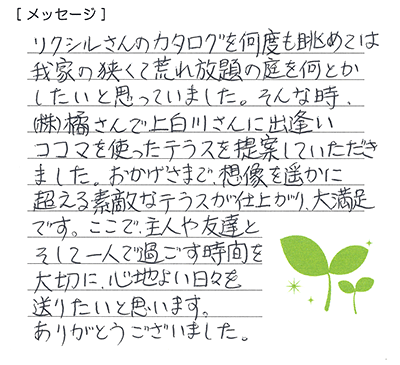 [ メッセージ ]
リクシルさんのカタログを何度も眺めては
我家の狭くて荒れ放題の庭を何とか
したいと思っていました。そんな時、
㈱橘さんで上白川さんに出逢い
ココマを使ったテラスを提案していただき
ました。おかげさまで、想像を遥かに
超える素敵なテラスが仕上がり、大満足
です。ここで、主人や友達と
そして一人で過ごす時間を
大切に、心地よい日々を
送りたいと思います。
ありがとうございました。